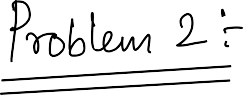 Problem 2:-